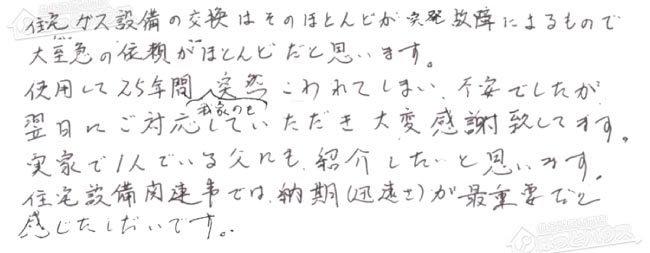 住宅ガス設備の交換はそのほとんどが突発故障によるもので
大至急の依頼がほとんどだと思います。
使用して25年間突然こわれてしまい、不安でしたが
我家のも
翌日にご対応していただき大変感謝致してます。
実家で1人でいる父にも紹介したいと思います。
住宅設備関連事では、納期(迅速さ)が最重要だと
感じたしだいです。